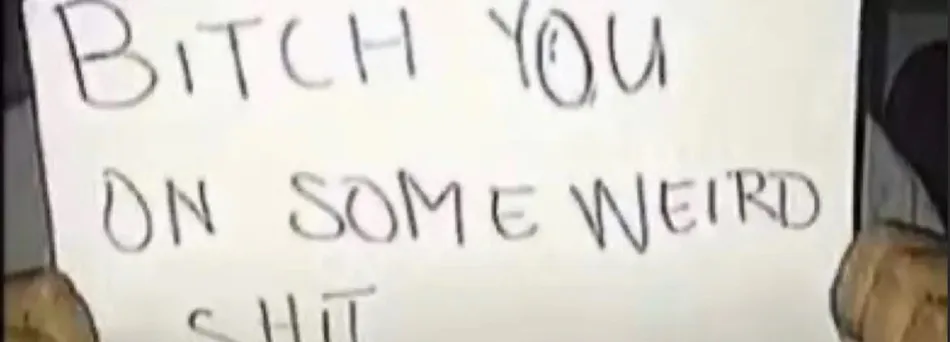 BITCH YOU
ON SOME WEIRD
SHIT